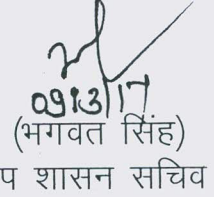 09/3/17
(भगवत सिंह)
प शासन सचिव